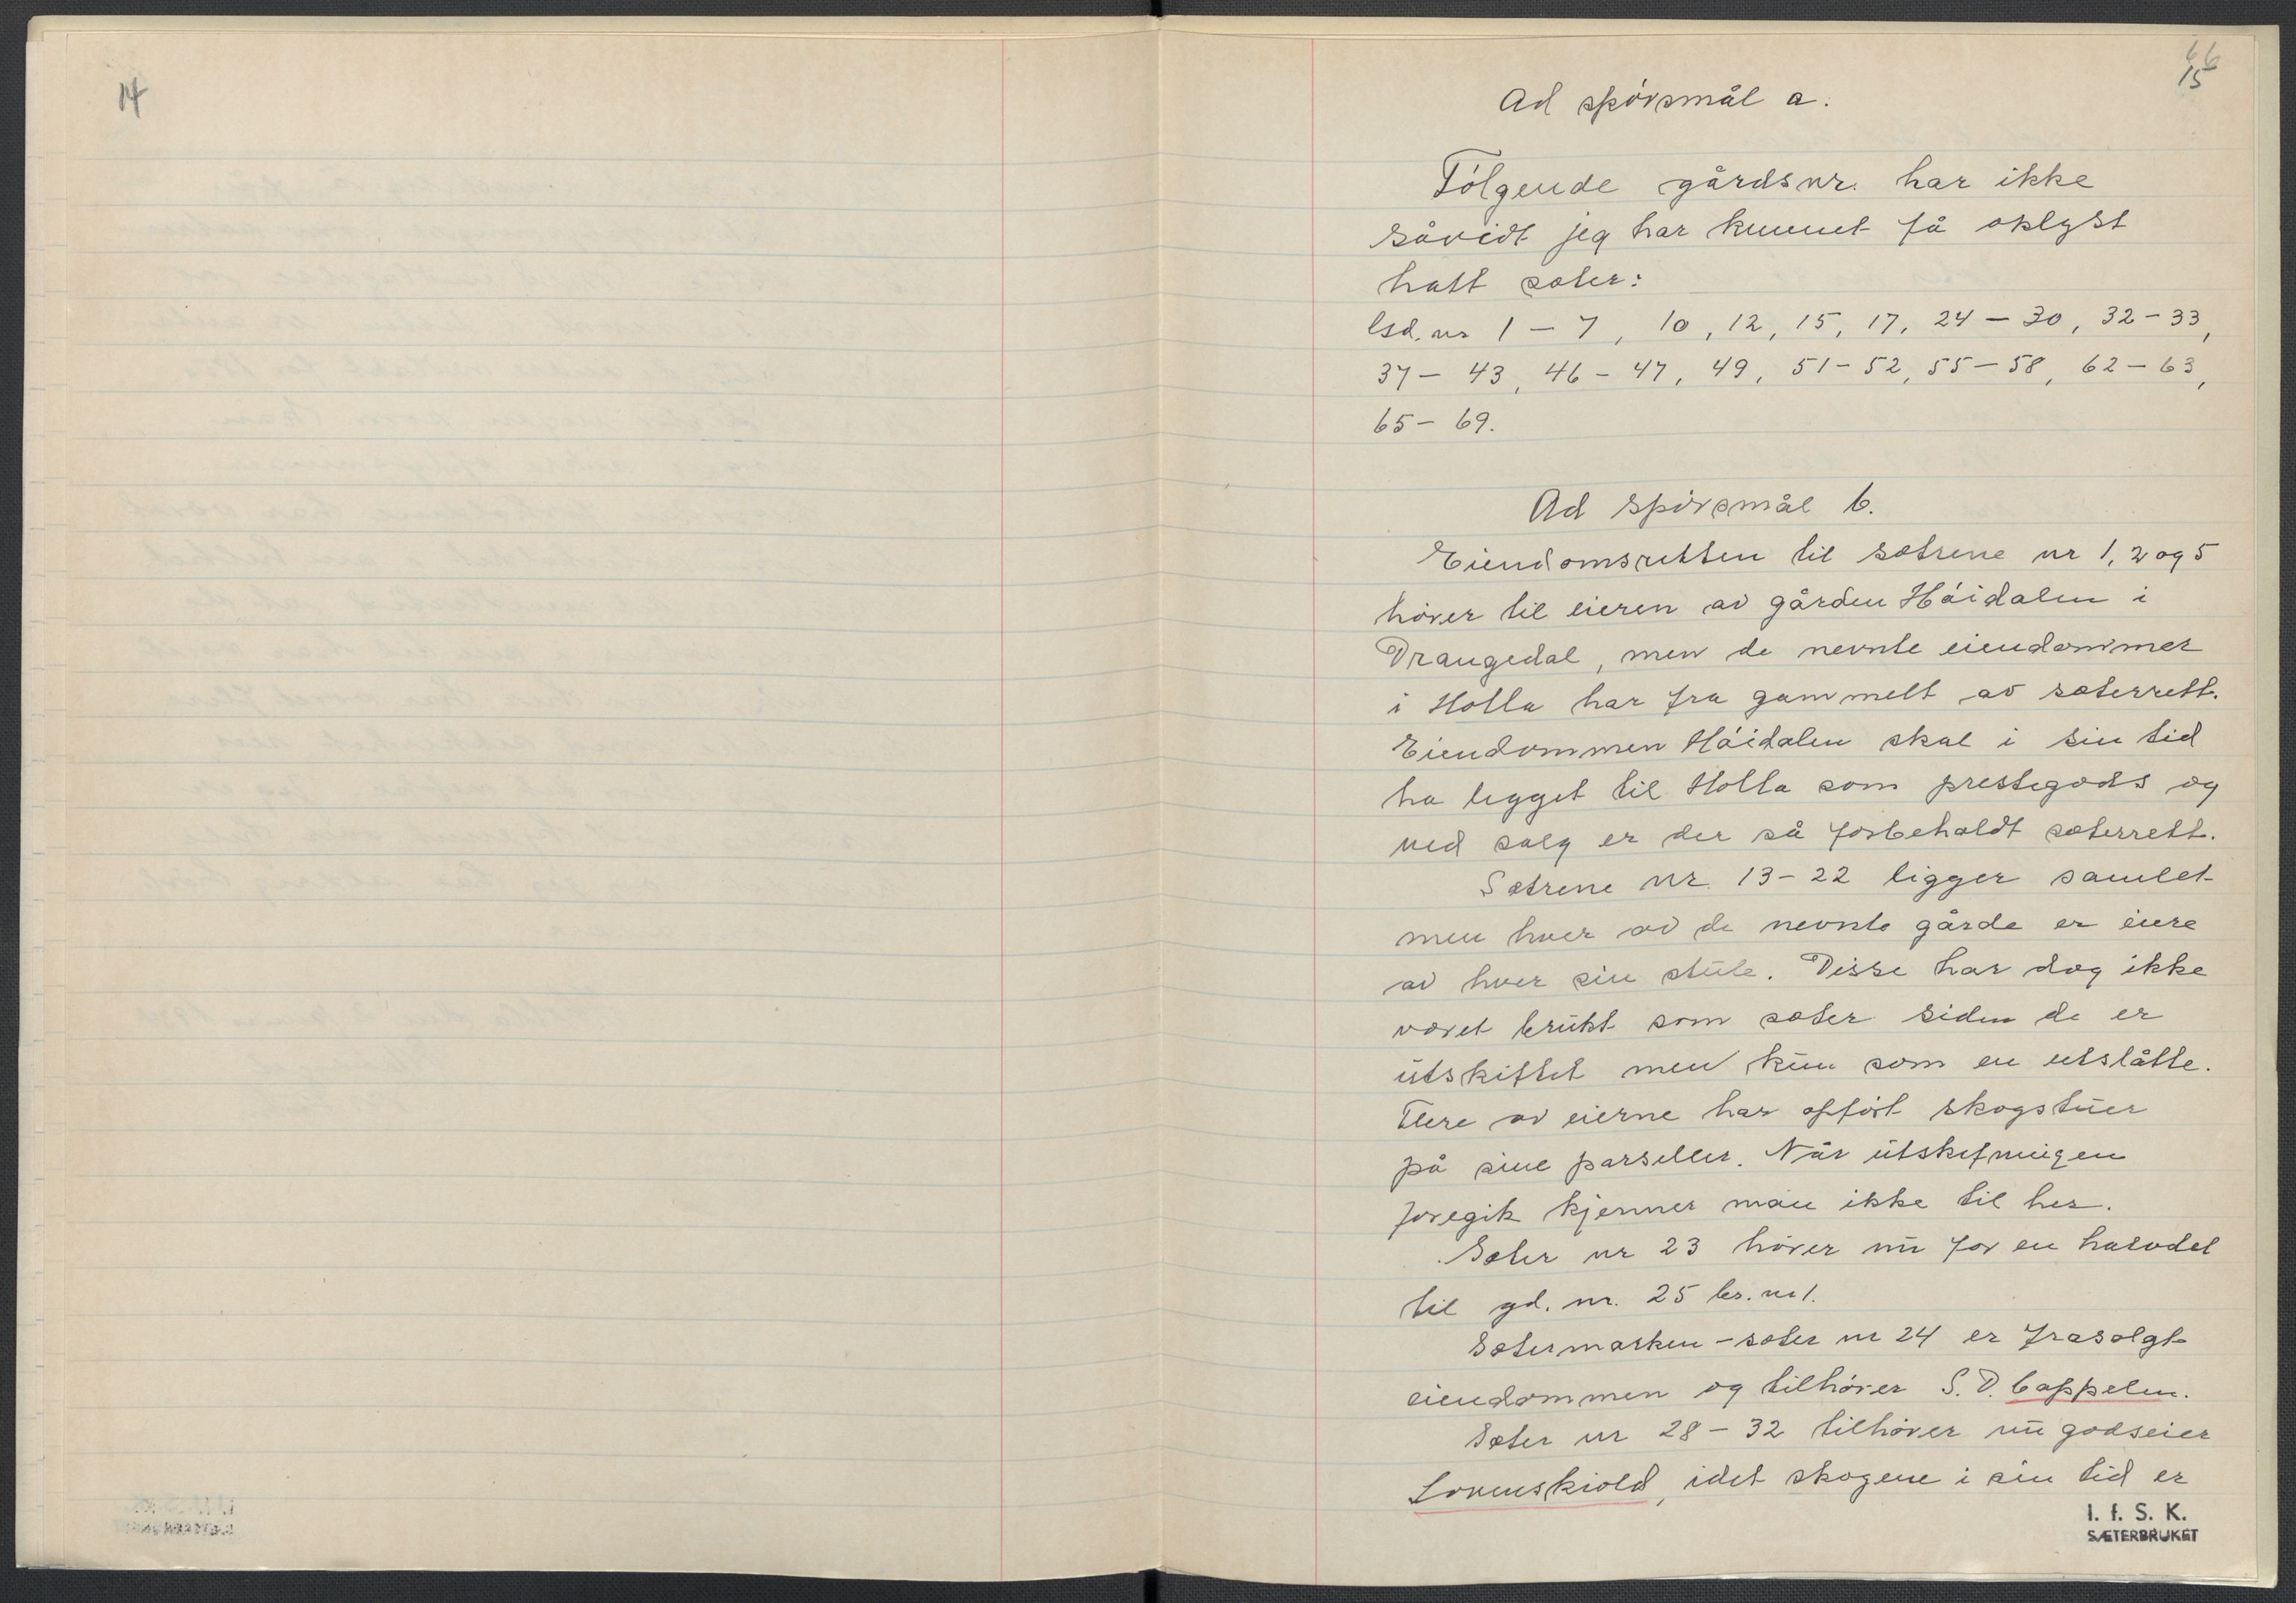 14
66
15
Ad spörsmål a.
Fölgende gårdsnr. har ikke
såvidt jeg har kunnet få oplyst
hatt sæter:
Gd. nr 1 – 7, 10, 12, 15, 17, 24 – 30, 32 – 33,
37 – 43, 46 – 47, 49, 51 – 52, 55 – 58, 62 – 63,
65 – 69.
Ad spörsmål b.
Eiendomsretten til sætrene nr 1, 2 og 5
hörer til eieren av gården Höidalen i
Drangedal, men de nevnte eiendommer
i Holla har fra gammelt av sæterrett.
Eiendommen Höidalen skal i sin tid
ha ligget til Holla som prestegods og
ved salg er der så forbeholdt sæterrett.
Sætrene nr. 13 – 22 ligger samlet
men hver av de nevnte gårde er eiere
av hver sin stule. Disse har dog ikke
været brukt som sæter siden de er
utskiftet men kun som en utslåtte.
Flere av eierne har opfört skogstuer
på sine parseller. Når utskifningen
foregik kjenner man ikke til her.
Sæter nr 23 hörer nu for en halvdel
til gd. nr. 25 br. nr 1.
Sætermarken – sæter nr 24 er frasolgt
eiendommen og tilhörer S. D. Cappelen.
Sæter nr 28 – 32 tilhörer nu godseier
Lövenskiold, idet skogene i sin tid er
I. f. S. K.
SÆTERBRUKET